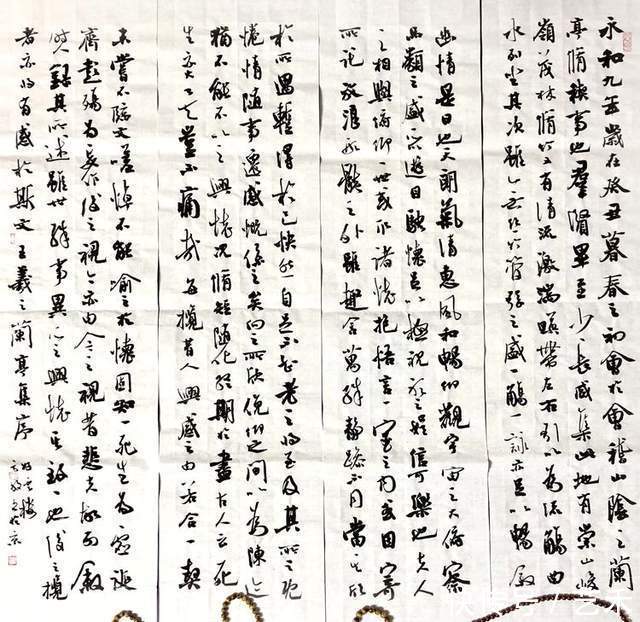 永和九年歲在癸丑暮春之初會於會稽山陰之蘭
亭脩禊事也群賢畢至少長咸集此地有崇山峻
嶺茂林脩竹又有清流激湍暎帶左右引以為流觴曲
水列坐其次雖無絲竹管弦之盛一觴一詠亦足以暢敘
幽情是日也天朗氣清惠風和暢仰觀宇宙之大俯察
品類之盛所以遊目騁懷足以極視聽之娛信可樂也夫人
之相與俯仰一世或取諸懷抱悟言一室之內或因寄
所託放浪形骸之外雖趣舍萬殊靜躁不同當其欣
於所遇暫得於己快然自足不知老之將至及其所之既
惓情隨事遷感慨係之矣向之所欣俛仰之間以為陳迹
猶不能不以之興懷況脩短隨化終期於盡古人云死
生亦大矣豈不痛哉每攬昔人興感之由若合一契
未嘗不臨文嗟悼不能喻之於懷固知一死生為虛誕
齊彭殤為妄作後之視今亦由今之視昔悲夫故列敘
時人錄其所述雖世殊事異所以興懷其致一也後之攬
者亦將有感於斯文王羲之蘭亭集序
快传号/艺术